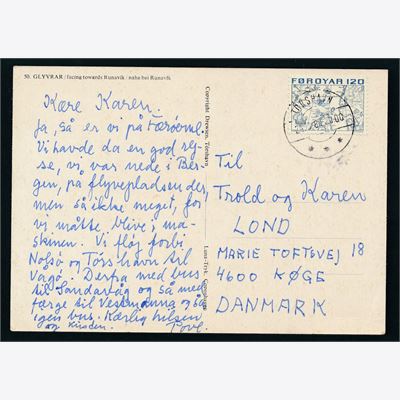 50. GLYVRAR / facing towards Runavík / nahe bei Runavík
FØROYAR 120
TÓRSHAVN
Copyright Drewsen, Tórshavn
Kære Karen.
Ja, så er vi på Færøerne
Vi havde da en god rej-
se, vi var nede i Ber-
gen, på flyvepladsen der,
men så ikke meget, for
vi måtte blive i ma-
skinen. Vi fløj forbi
Nolsø og Tórshavn til
Vagø. Derfra med bus
til Sandavåg og så med
færge til Vestmanna og så
igen bus. Kærlig hilsen
Til
Trold og Karen
LOND
MARIE TOFTSVEJ 18
4600 KØGE
DANMARK